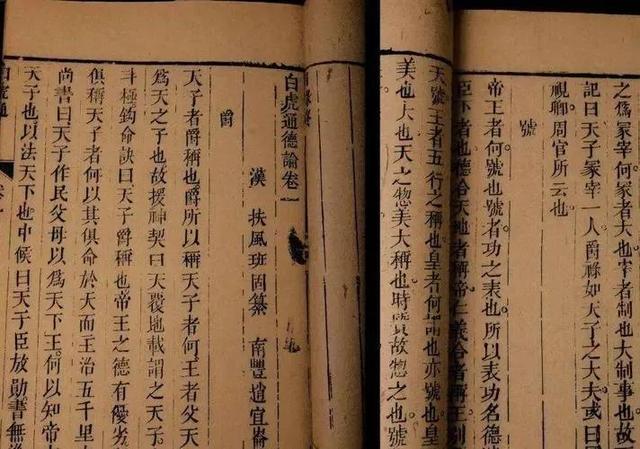 白虎通德論卷一
漢 扶風班固纂 南豐趙宜崙
爵
天子者爵稱也爵所以稱天子者何王者父天
爲天之子也故援神契曰天覆地載謂之天子
斗極鈎命訣曰天子爵稱也帝王之德有優劣
俱稱天子者何以其俱命於天而王治五千里
尚書曰天子作民父母以爲天下王何以知帝
天子也以法天下也中候曰天子臣放勛書無
白虎通 卷一
之爲冢宰何冢者大也宰者制也大制事也故
記曰天子冢宰一人爵祿如天子之大夫或曰
視卿周官所云也
號
帝王者何號也號者功之表也所以表功名德
臣下者也德合天地者稱帝仁義合者稱王別
天號王者五行之稱也皇者何謂也亦號也皇
美也大也天之惣美大稱也時質故惣之也號